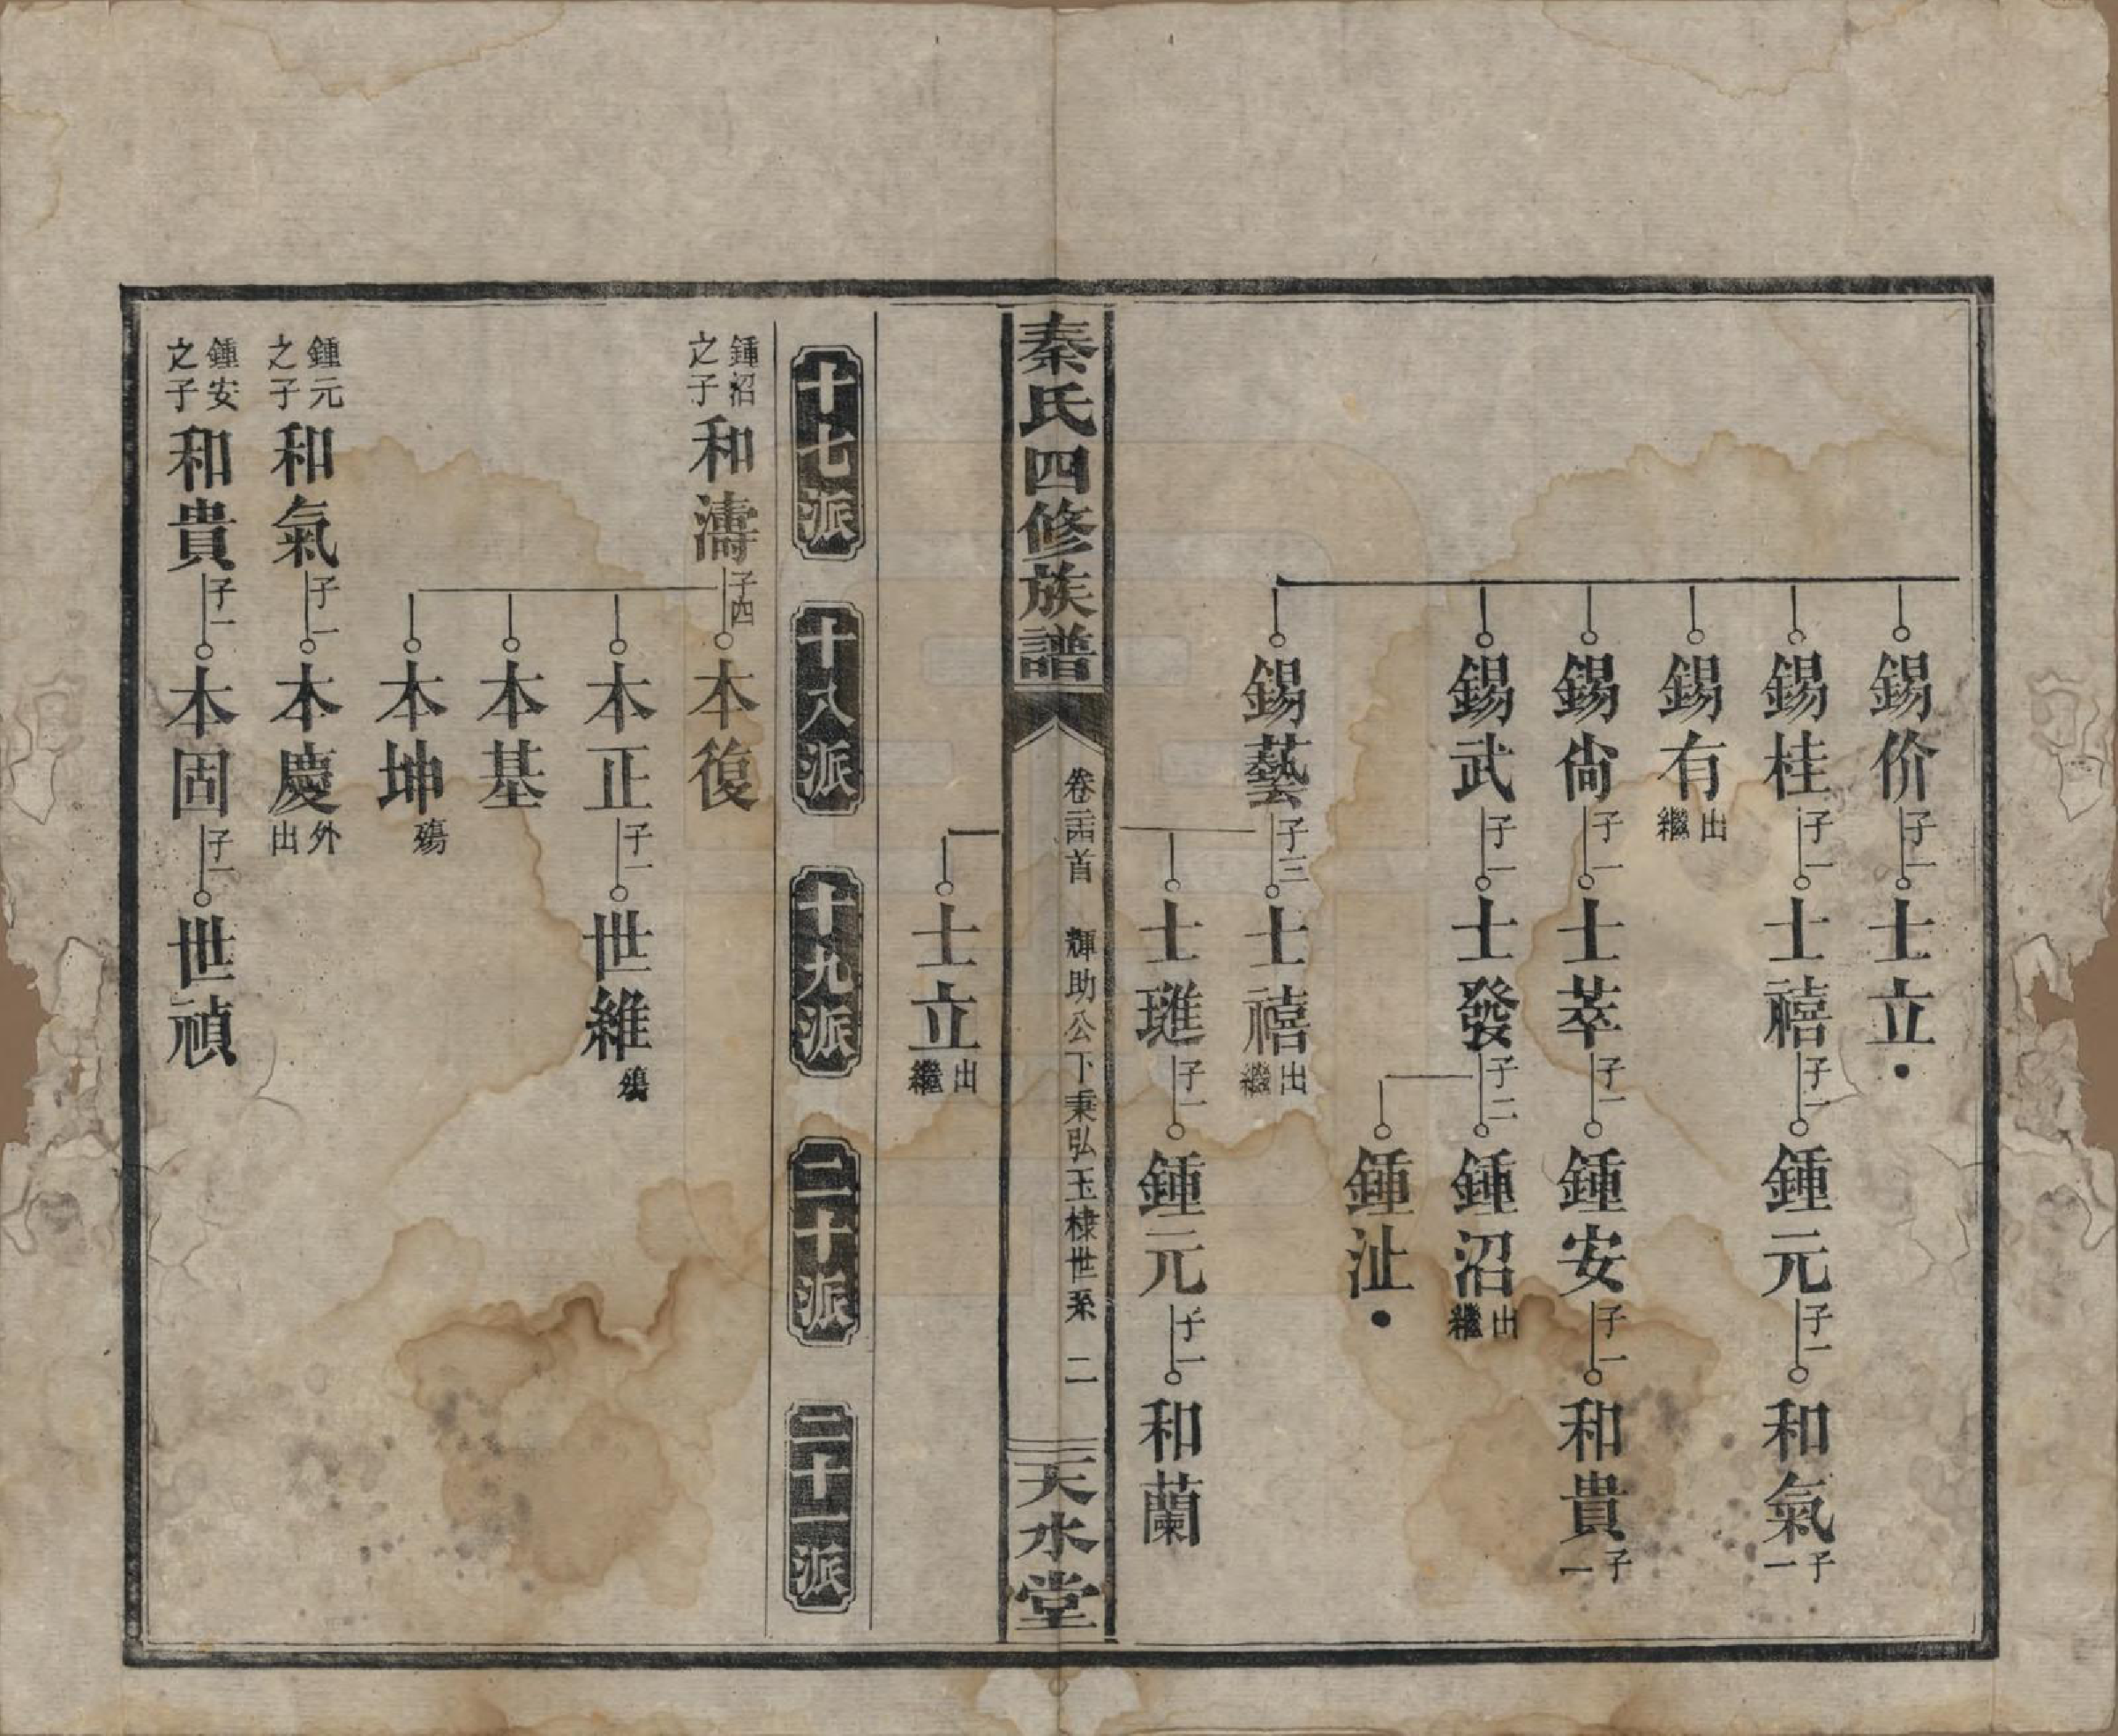 錫价 子一 士立
錫桂 子一 士禧 子一 鍾元 子一 和氣 子一
錫有 出繼
錫尙 子一 士萃 子一 鍾安 子一 和貴 子一
錫武 子一 士發 子二 鍾沼 出繼
鍾沚
錫藝 子三 士禧 出繼
士璡 子一 鍾元 子一 和蘭
秦氏四修族譜 卷首 輝助公下秉弘玉棣世系 二 天水堂
士立 出繼
十七派 十八派 十九派 二十派 二十一派
鍾沼之子 和濤 子四 本復
本正 子一 世維 殤
本基
本坤 殤
鍾元之子 和氣 子一 本慶 外出
鍾安之子 和貴 子一 本固 子一 世禎